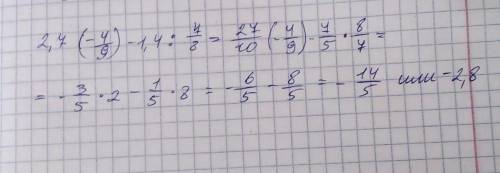 2,7 (-4/9) - 1,4 : 7/8 = 27/10 (-4/9) - 7/5 · 8/7 =
= -3/5 · 2 - 1/5 · 8 = -6/5 - 8/5 = -14/5 или -2,8